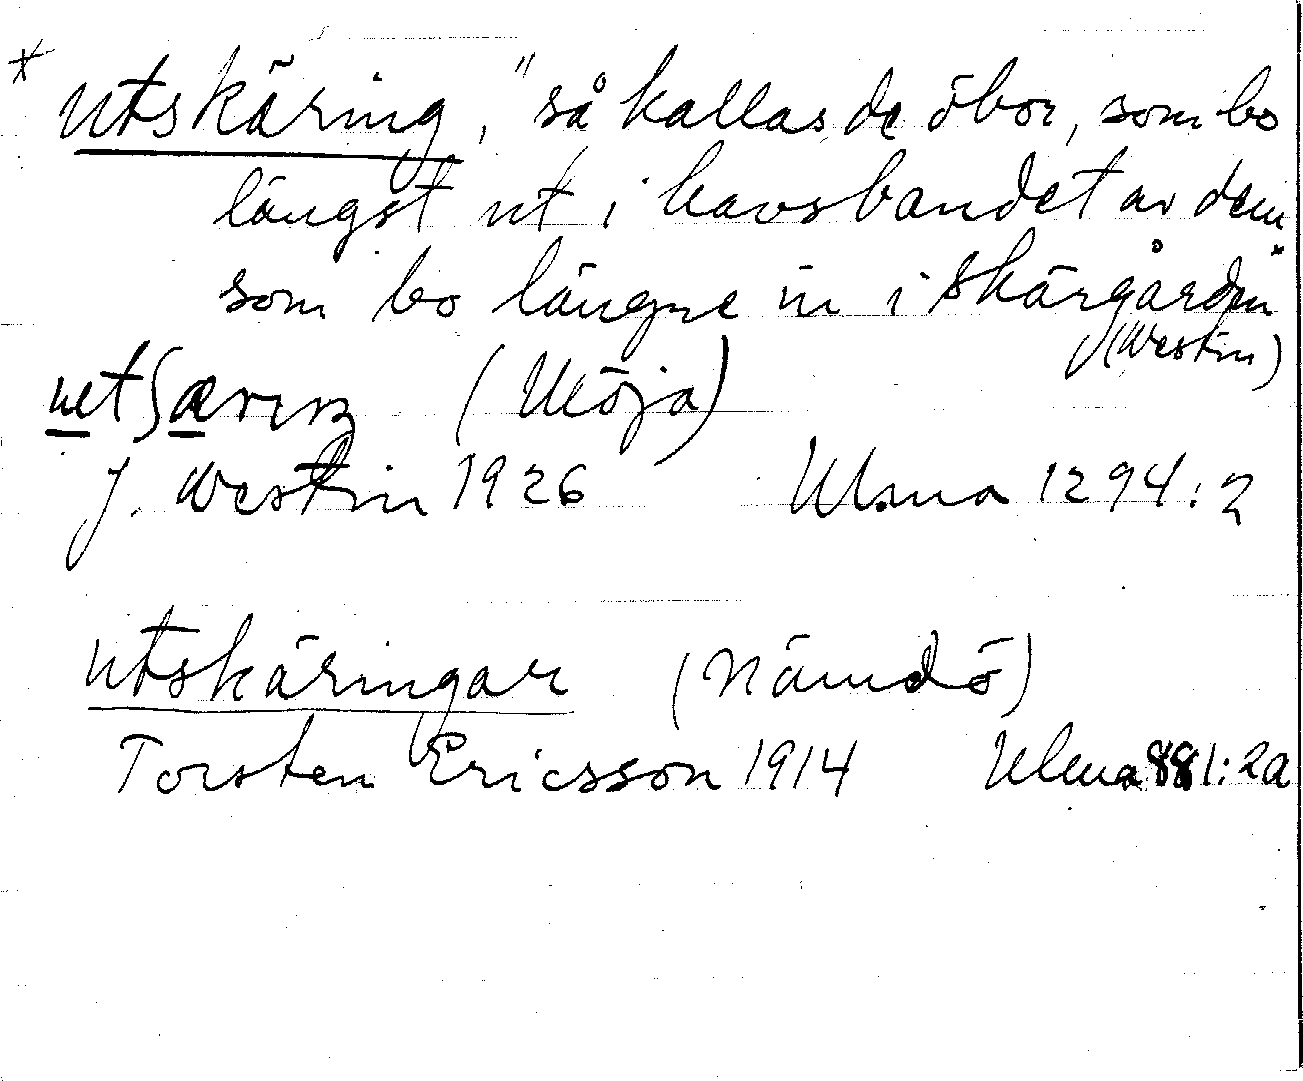 * utskäring, "så kallas de öbor, som bo
längst ut i havsbandet av dem
som bo längre in i skärgården"
(Westin)
(Möja)
J. Westin 1926 Ulma 1294:2
utskäringar (Nämdö)
Torsten Ericsson 1914 Ulma 881:2a